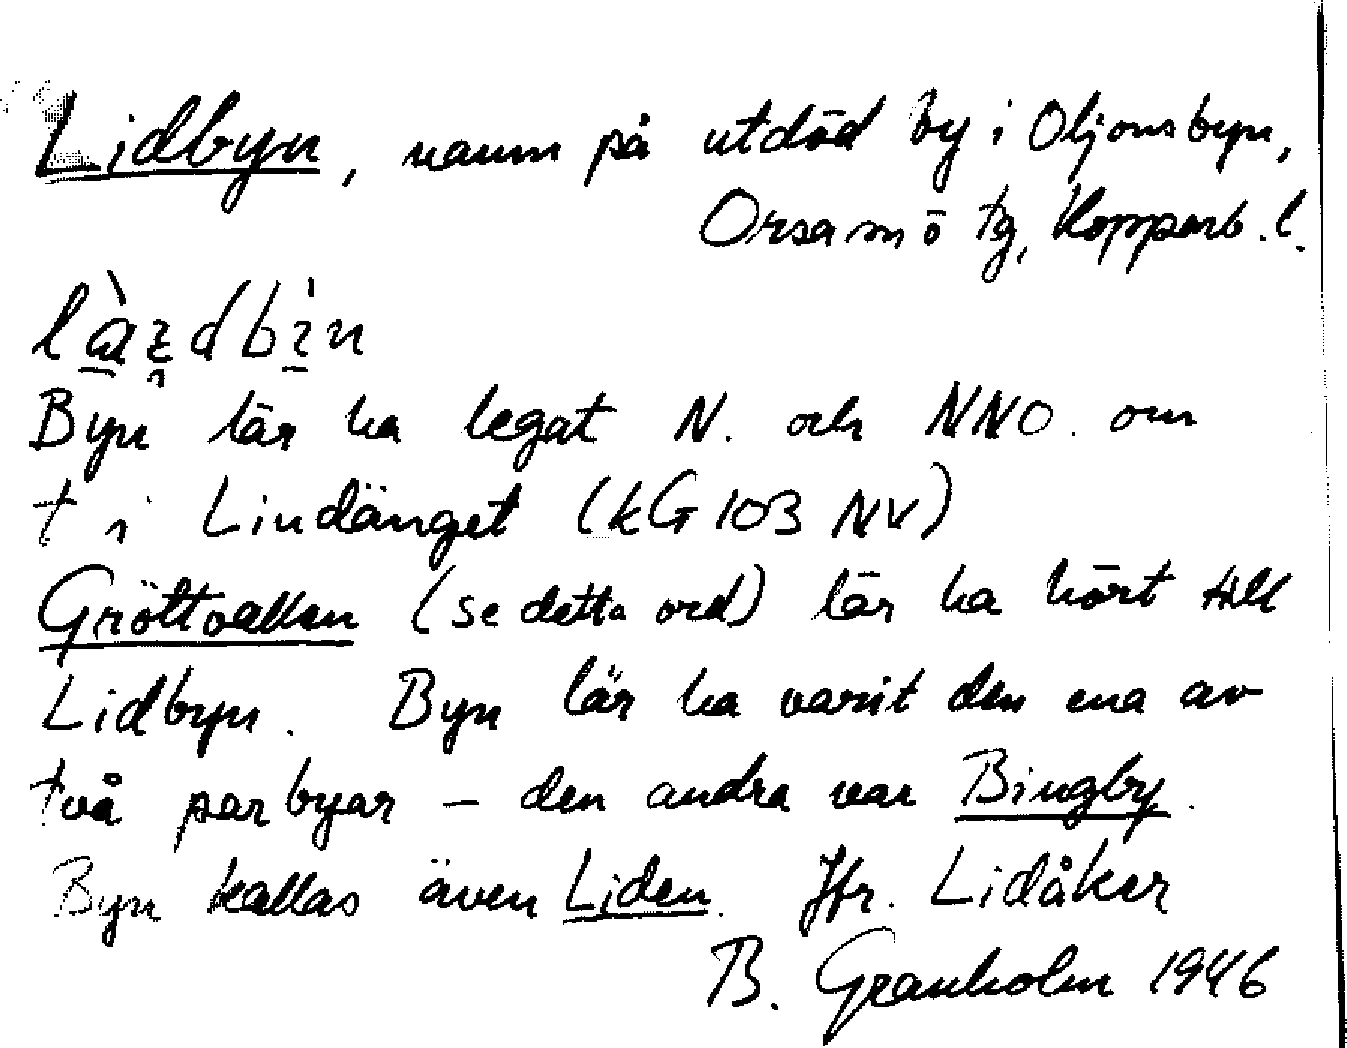 Lidbyn, namn på utdöd by i Oljonsbyn,
Orsa sn ö tg, Kopparb. l.
Byn lär ha legat N. och NNO. om
t i Lindänget (kG 103 NV)
Gröttvallen (se detta ord) lär ha hört till
Lidbyn. Byn lär ha varit den ena av
två parbyar – den andra var Bingby.
Byn kallas även Liden. Jfr. Lidåker
B. Granholm 1946